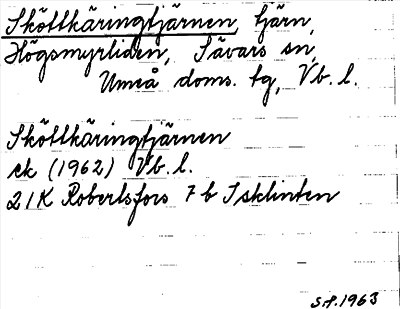 Sköttkäringtjärnen, tjärn,
Högsmyrliden, Sävars sn,
Umeå doms. tg, Vb. l.
Sköttkäringtjärnen
ek (1962) Vb. l.
21K Robertsfors 7 b Isklinten
S.A. 1963